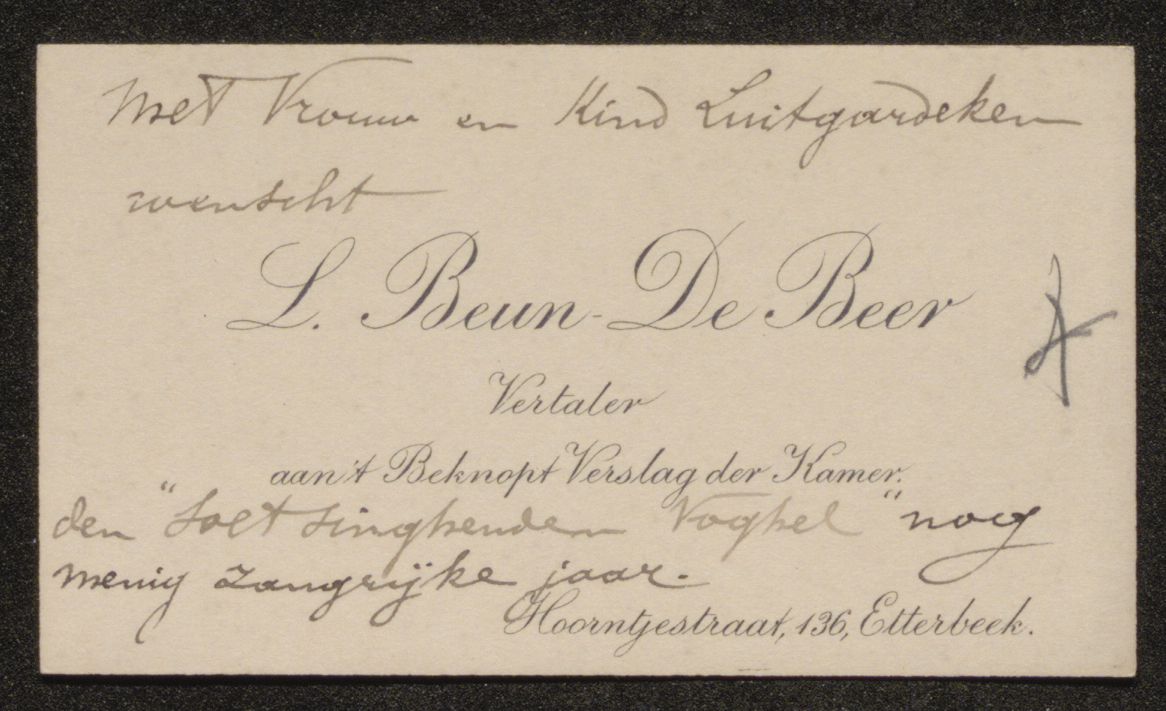 Met Vrouw en Kind Luitgardeken
wenscht
L. Beun-De Beer
Vertaler
aan 't Beknopt Verslag der Kamer.
den "Soet singhenden Voghel" nog
menig zangrijke jaar.
Hoorntjestraat, 136, Etterbeek.